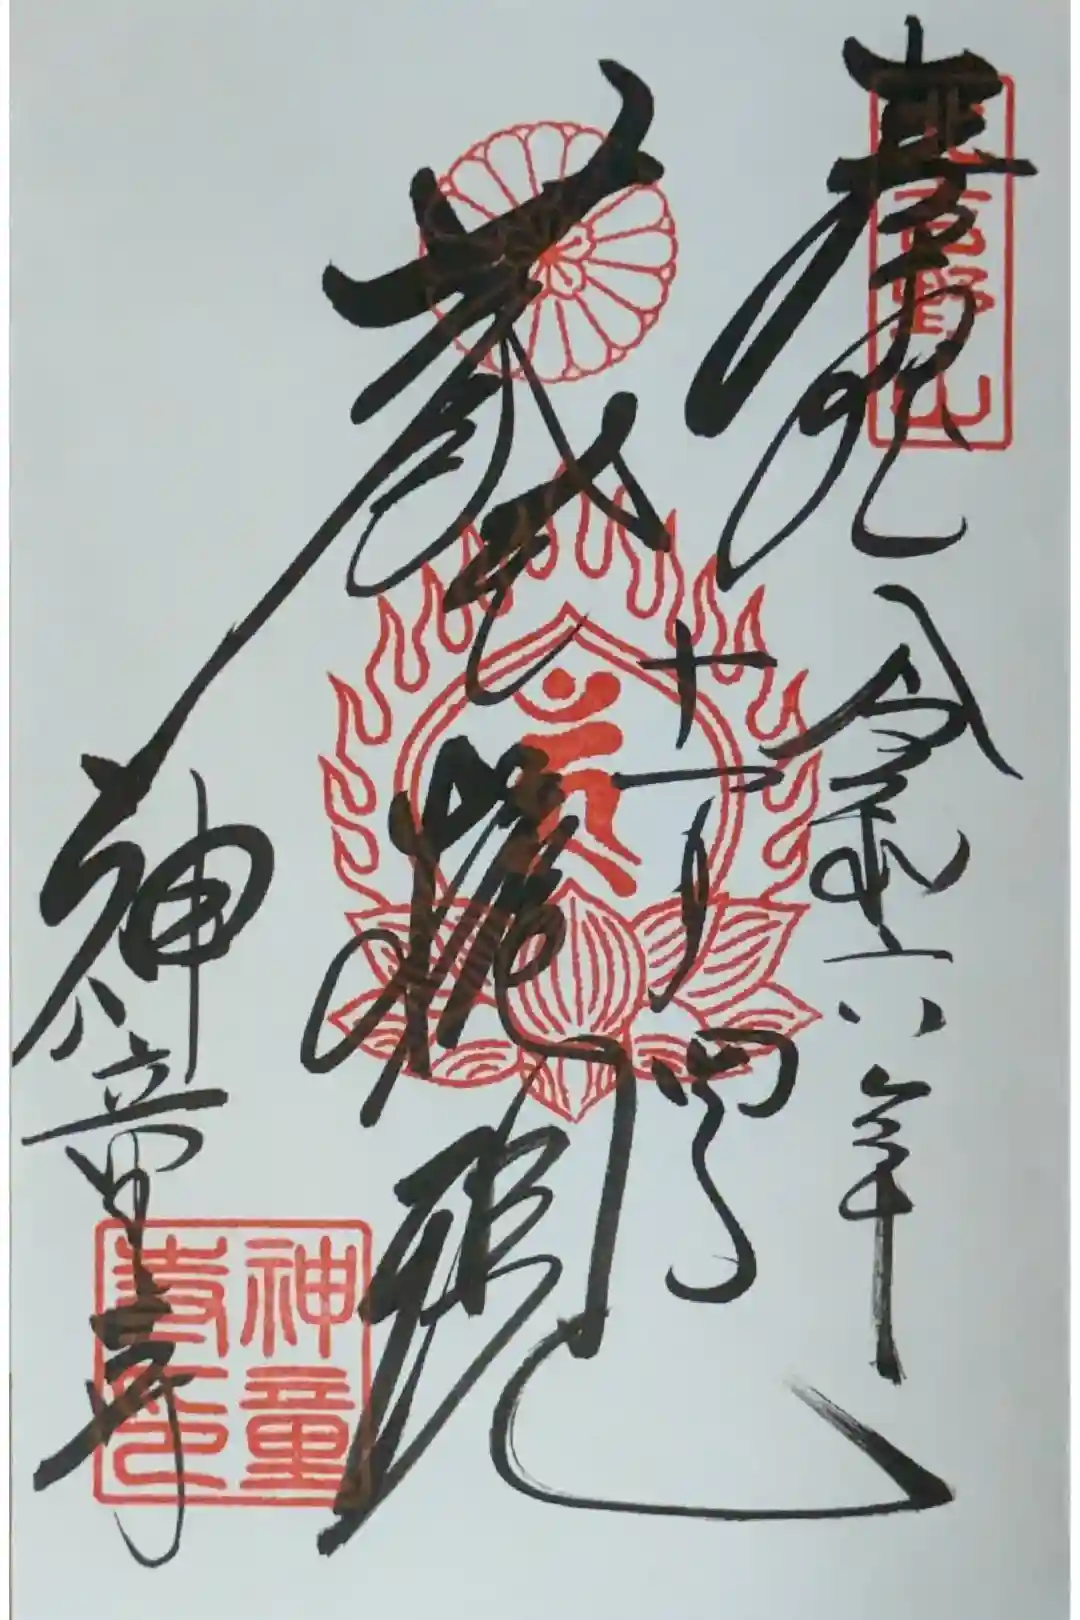 奉拝
北吉野山
令和六年
十一月四日
蔵王権現
神童寺
神童
寺印